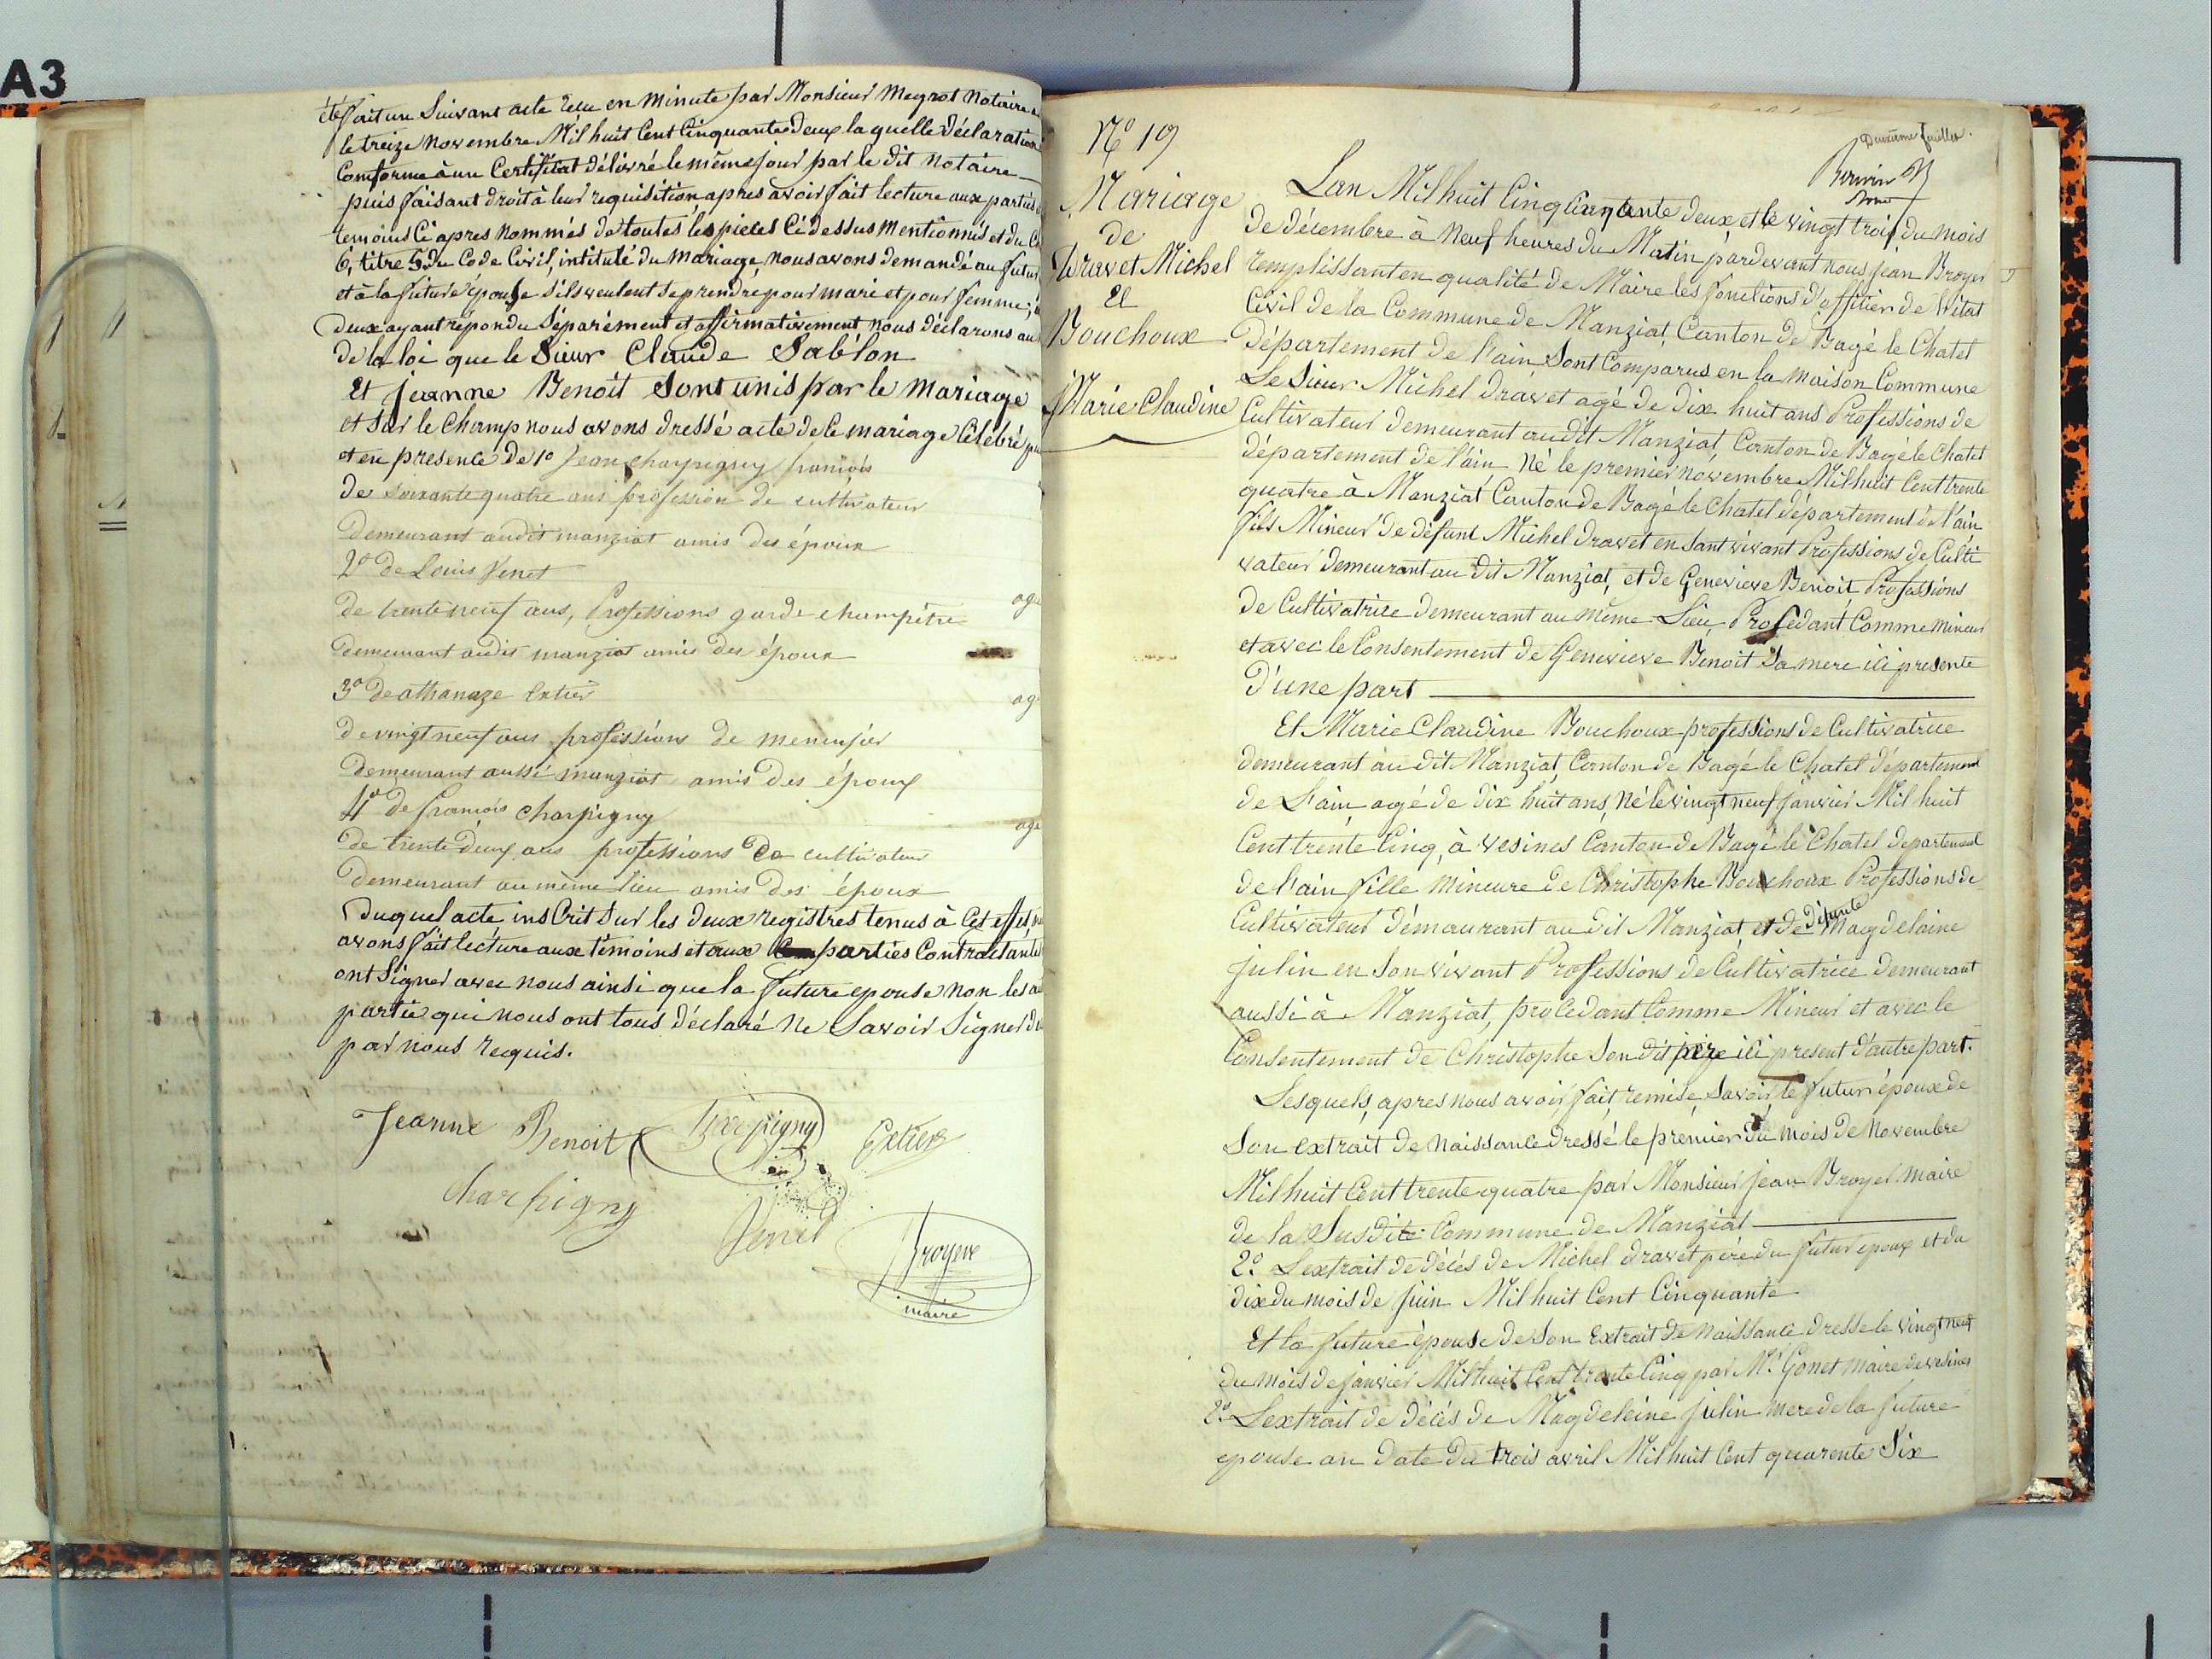 A3
été fait un Suivant acte recu en minute par Monsieur Meyrot Notaire
le treize Novembre Mil huit Cent Cinquante deux la quelle déclaration
Conforme à un Certificat délivré le même jour par le dit Notaire
puis faisant droit à leur requisition, apres avoir fait lecture aux parties
temoins Ci apres Nommés de toutes les pieces Ci dessus Mentionnés et du Ch
6, titre 5 du Code Civil, intitulé du Mariage, Nous avons demandé au futur
et à la future épouse s'ils veulent Se prendre pour mari et pour femme;
deux ayant répondu Séparément et affirmativement, nous déclarons au
de la loi que le Sieur Claude Sablon
Et jeanne Benoit Sont unis par le Mariage
et sur le Champ nous avons dressé acte de Ce mariage Célébré pu
et en presence de 1o Jean charpigny francois
de soixante quatre ans profession de cultivateur
demeurant audit manziat amis des époux
2o de Louis Venet
age
de trente neuf ans, Professions garde champètre
demeurant audit manziat amis des époux
3o de athanaze Extier
age
de vingt neuf ans professions de menusier
demeurant aussi manziat amis des époux
4o de francois Charpigny
age
de trente deux ans professions de cultivateur
demeurant au même lieu amis des époux
Duquel acte inscrit Sur les deux registres tenus à Cet effet,
avons fait lecture aux témoins et aux parties Contractantes
ont Signer avec nous ainsi que la future epouse non les a
partie qui nous ont tous déclaré Ne Savoir Signer de
par nous requis.
Jeanne Benoit Charpigny Extier
Charpigny Venet
Broyer
maire
No 19
Mariage
de
Dravet Michel
Et
Bouchoux
Marie Claudine
Deuxieme feuillet.
Lan Mil huit Cinq Cinquante deux, et le vingt trois du mois
de décembre à Neuf heures du Matin pardevant nous jean Broyer
remplissant en qualité de Maire les fonctions d'offitier de l'état
Civil de la Commune de Manziat, Canton de Bagé le Chatel
Département de l'ain, Sont Comparus en la Maison Commune
Le Sieur Michel dravet agé de dix huit ans Professions de
Cultivateur demeurant audit Manziat, Canton de Bagé le Chatel
département de l'ain Né le premier Novembre Mil huit Cent trente
quatre à Manziat Canton de Bagé le Chatel département de l'ain
fils Mineur de défunt Michel dravet en Sont vivant Professions de Culti
vateur demeurant au dit Manziat, et de Genevieve Benoit Professions
de Cultivatrice demeurant au même Lieu, Procédant Comme Mineur
et avec le Consentement de Genevieve Benoit Sa mere ici presente
D'une part
Et Marie Claudine Bouchoux professions de Cultivatrice
demeurant au dit Manziat, Canton de Bagé le Chatel département
de L'ain, agé de dix huit ans, Né le vingt neuf janvier Mil huit
Cent trente Cinq, à vesines Canton de Bagé le Chatel departement
de l'ain fille mineure de Christophe Bouchoux Professions de
Cultivateur démaurant au dit Manziat et de défunte Magdelaine
julin en Son vivant Professions de Cultivatrice demeurant
aussi à Manziat, procedant Comme Mineur et avec le
Consentement de Christophe Son dit père ici present d'autre part.
Lesquels, apres nous avoir fait remise, Savoir, le futur époux de
Son extrait de Naissance dressé le premier du mois de Novembre
Mil huit Cent trente quatre par Monsieur jean Broyer Maire
de la Susdite Commune de Manziat
2o Lextrait de décés de Michel dravet père du futur epoux et du
dix du mois de juin Mil huit Cent Cinquante
Et la future épouse de Son Extrait de Naissance dresse le vingt neuf
du mois de janvier Mil huit Cent trente Cinq par Mr Gonet Maire de vesines
2o Lextrait de décés de Magdeleine julin mere de la future
epouse an date du trois avril Mil huit Cent quarente Six